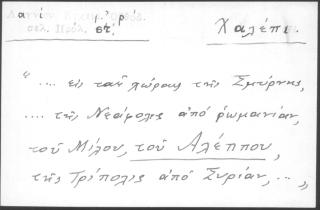 Χαλέπι.
στ!
"... εις ταῖς χώραις τῆς Σμύρνης,
... τῆς Νεάπολις ἀπό ρωμανίαν,
τοῦ Μίλου, τοῦ Αλέππου,
τῆς Τρίπολις ἀπό Συρίαν, ... "